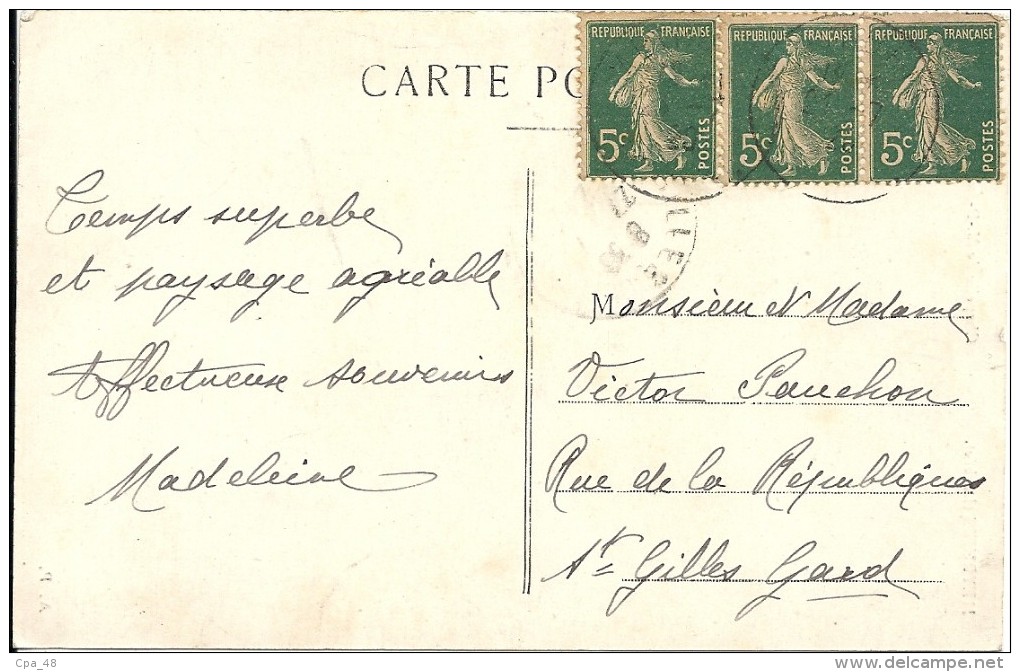 CARTE PO
RÉPUBLIQUE FRANÇAISE
5c
POSTES
RÉPUBLIQUE FRANÇAISE
5c
POSTES
RÉPUBLIQUE FRANÇAISE
5c
POSTES
Temps superbe
et paysage agréable
Affectueuse souvenirs
Madeleine
Monsieur & Madame
Victor Pauchon
Rue de la République
St Gilles Gard
Cpa_48
www.delcampe.net